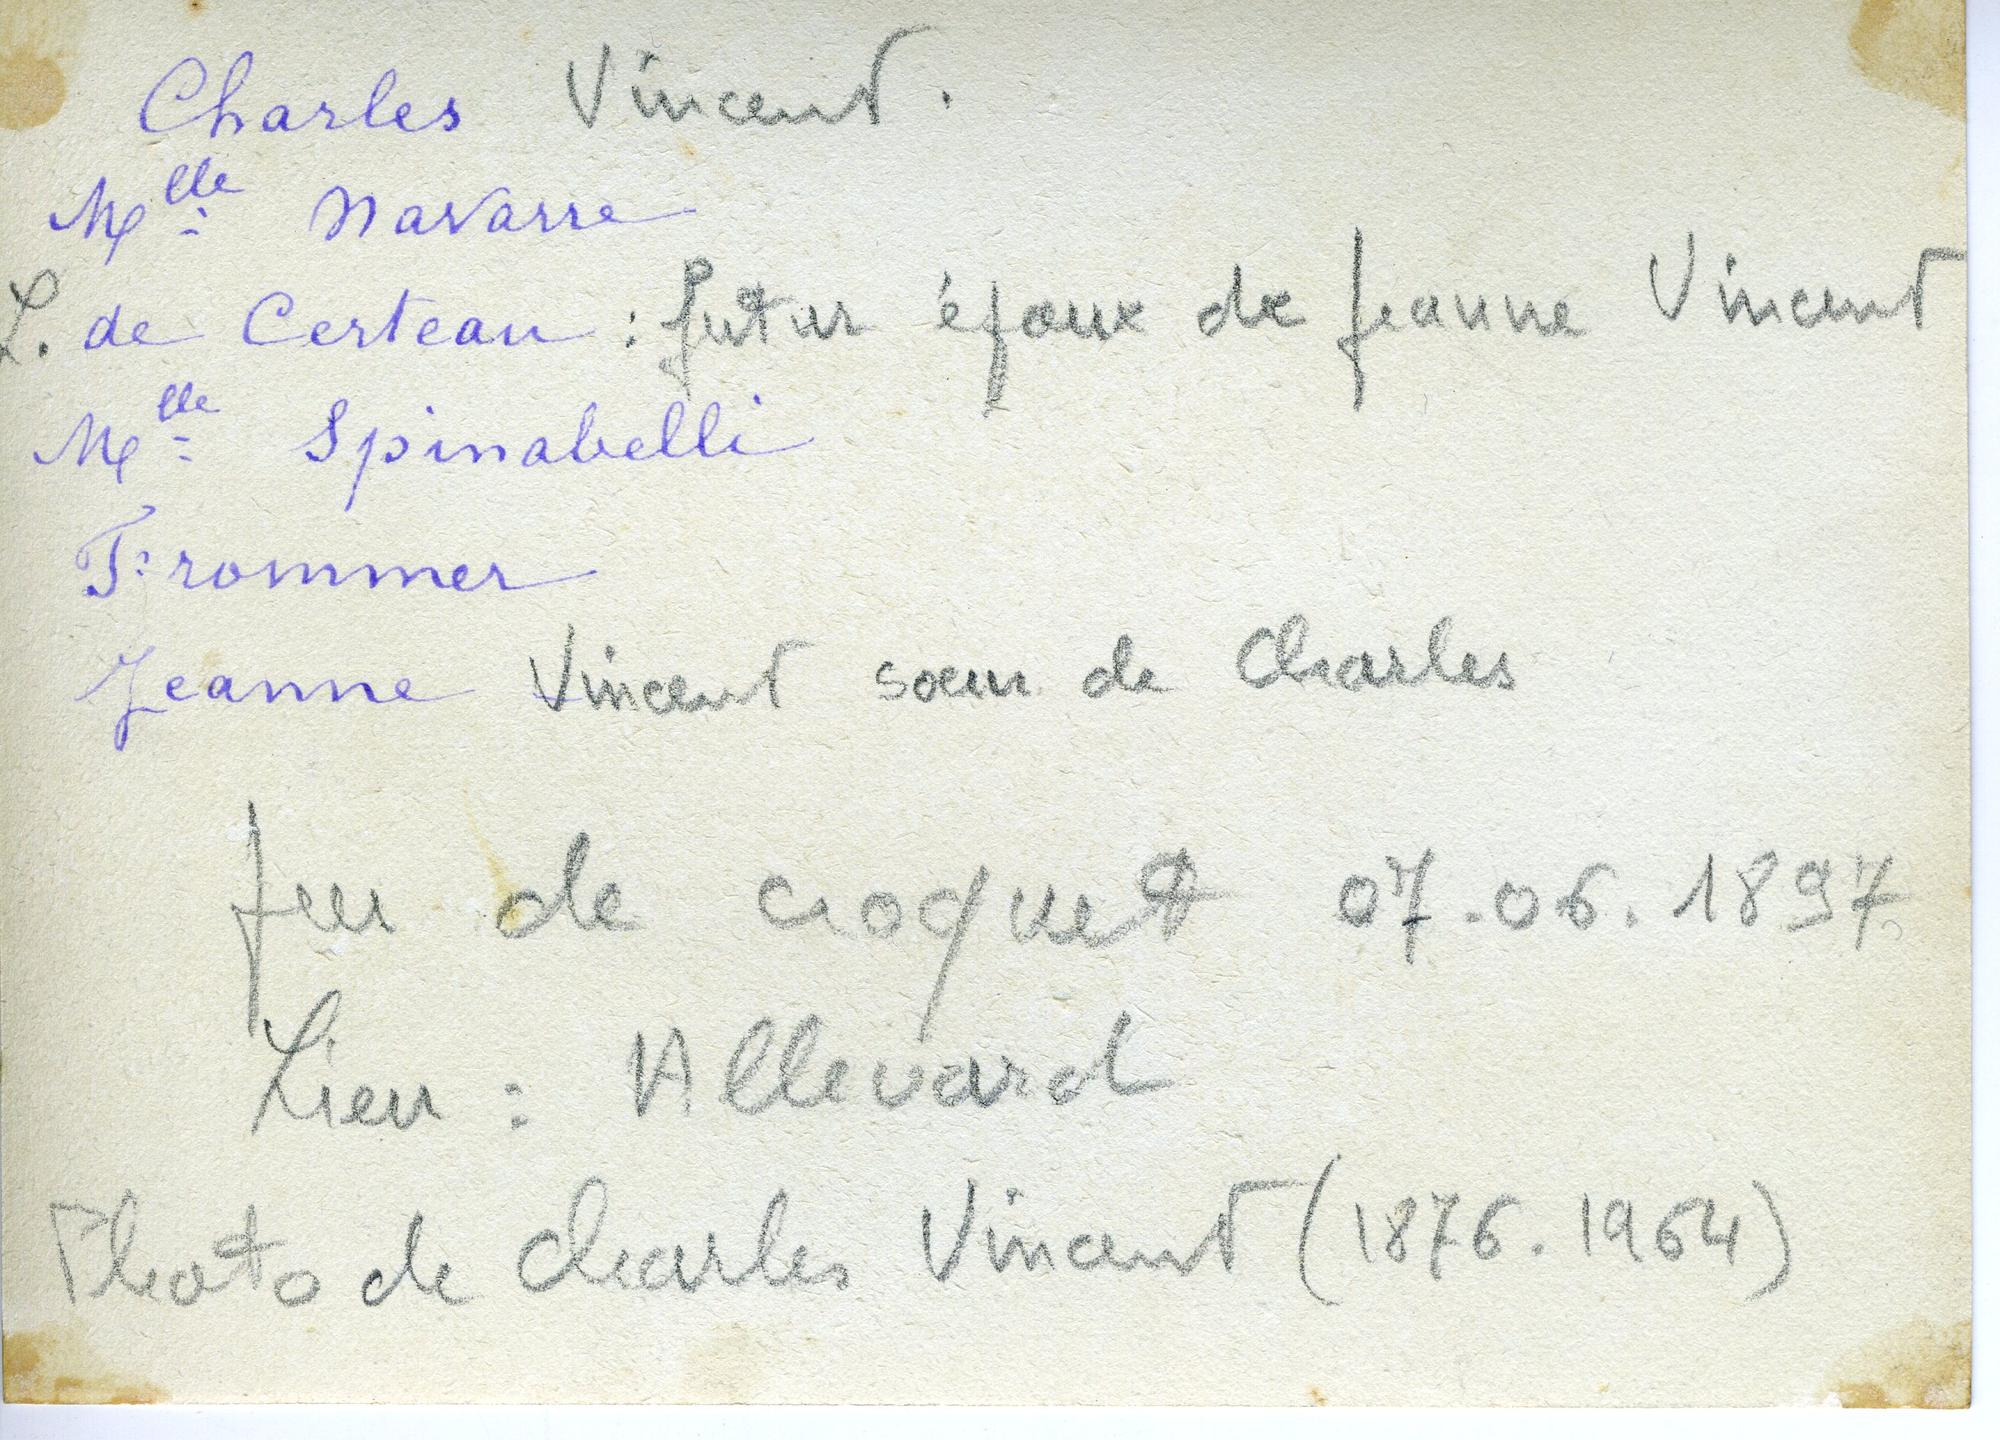 Charles Vincent.
Mlle Navarre
L. de Certeau : futur époux de Jeanne Vincent
Mlle Spinabelli
Frommer
Jeanne Vincent soeur de Charles
Jeu de croquet 07.06.1897
Lieu : Allevard
Photo de Charles Vincent (1876.1964)